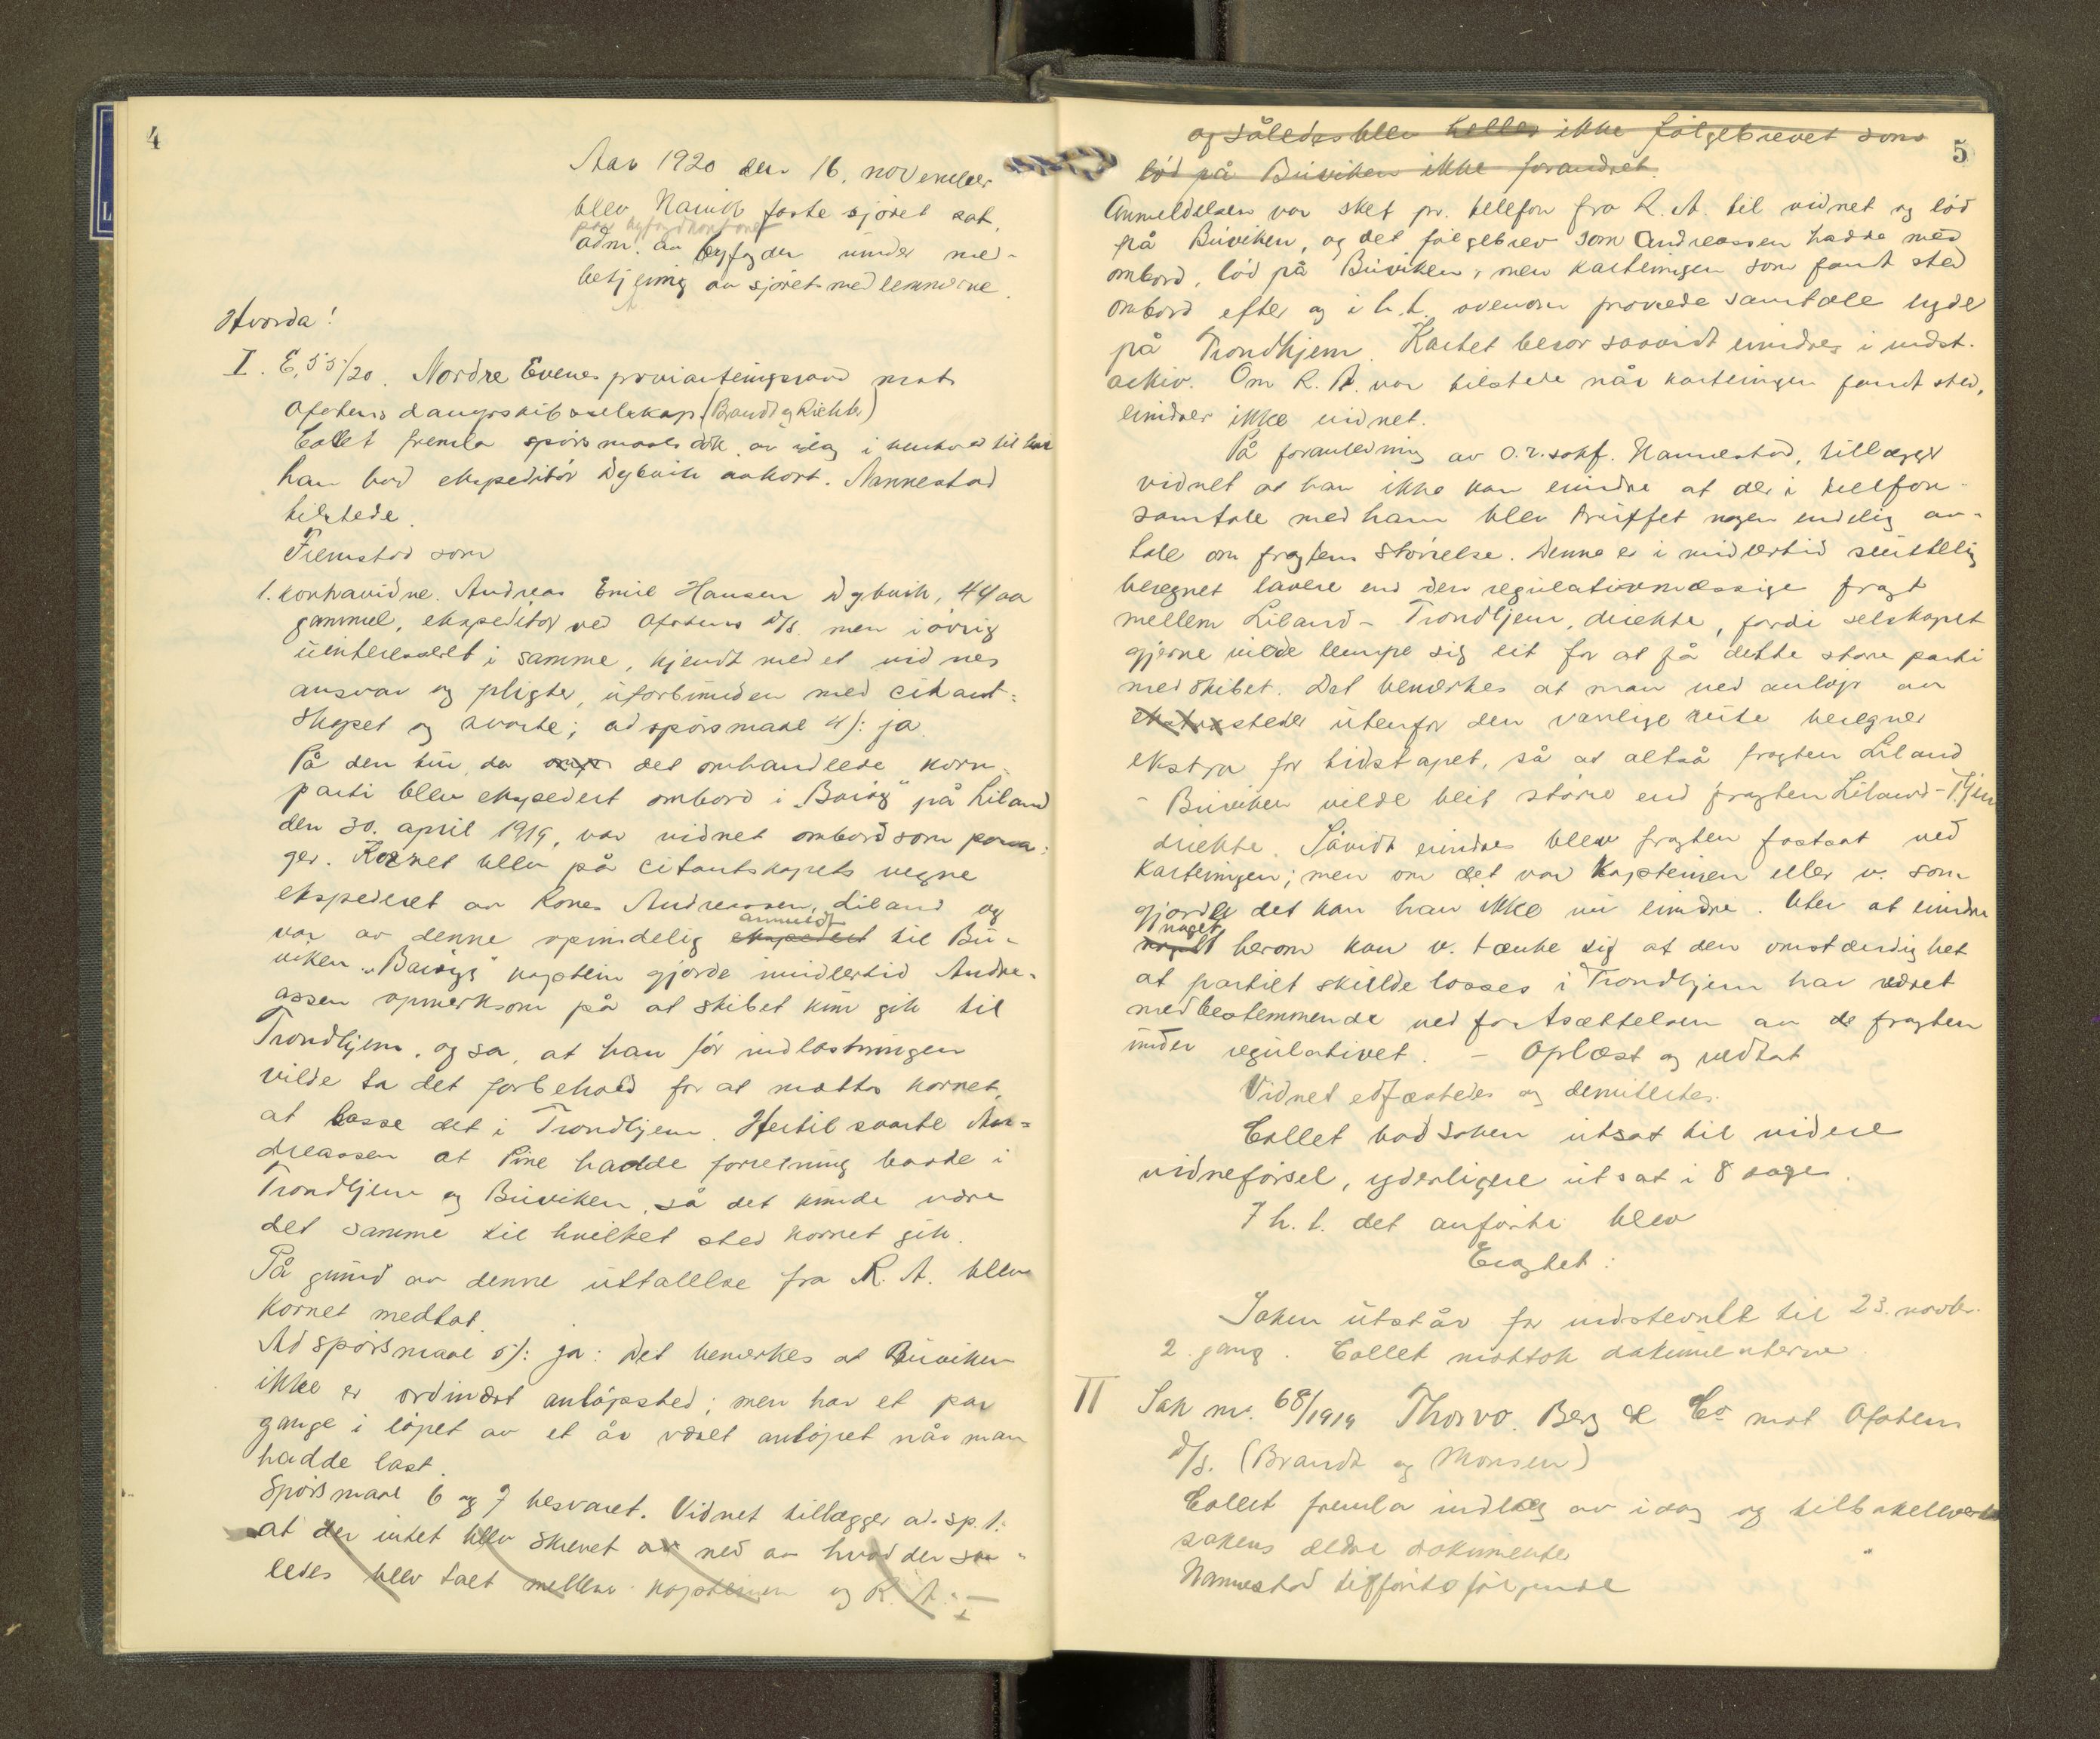 4
Aar 1920 den 16. november
blev Narvik faste sjöret sat,
paa byfogdkontoret
adm. av byfogden under med-
betjening av sjöretsmedlemmerne.
Hvorda!
I. E. 55/20. Nordre Evenes provianteringsraad mot
Ofotens dampskibsselskap. (Brandt og Richter)
Collet fremla spörsmaals dok. av idag i henhold til hvilket
han bad ekspeditör Dybvik avhört. Nannestad
tilstede.
Fremstod som
1. kontravidne. Andreas Emil Hansen Dybvik, 44 aar
gammel, ekspeditör ved Ofotens D/S. men iövrig
uinteressert i samme, kjendt med et vidnes
ansvar og pligter, uforbunden med citant-
skapet og svarte; ad spörsmaal 4/: ja.
På den tur, da det omhandlede korn-
parti blev ekspedert ombord i "Baröy" på Liland
den 30. april 1919, var vidnet ombord som passa-
ger. Kornet blev på citantskapets vegne
ekspederet av Rones Andreassen, Liland og
anmeldt
var av denne oprindelig ekspedert til Bu-
viken. "Baröys" kaptein gjorde imidlertid Andre-
assen opmerksom på at skibet kun gik til
Trondhjem, og sa, at han för indlastningen
vilde ta det forbehold for at motta kornet,
at losse det i Trondhjem. Hertil svarte An-
dreassen at Fine hadde forretning baade i
Trondhjem og Buviken, så det kunde være
det samme til hvilket sted kornet gik.
På grund av denne uttalelse fra R. A. blev
kornet medtat.
Ad spörsmaal 5/: ja: Det bemerkes at Buviken
ikke er ordinært anlöpssted; men har et par
gange i löpet av et år været anlöpet når man
hadde last.
Spörsmaal 6 og 7 besvaret. Vidnet tillægger ad. sp. 1.:
at der intet blev skrevet av ned av hvad der saa-
ledes blev talt mellem kapteinen og R. A.
5
og således blev heller ikke fölgebrevet som
löd på Buviken ikke forandret.
Anmeldelsen var sket pr. telefon fra R. A. til vidnet og löd
på Buviken, og det fölgebrev som Andreassen hadde med
ombord, löd på Buviken, men karteringen som fandt sted
ombord efter og i h. t. ovenom prövede samtale lyder
på Trondhjem. Kartet beror saavidt erindres i indst.
arkiv. Om R. A. var tilstede når karteringen fandt sted,
erindrer ikke vidnet.
På foranledning av o.r.sakf. Nannestad, tillægger
vidnet at han ikke kan erindre at der i telefon-
samtale med ham blev truffet nogen endelig av-
tale om fragtens störrelse. Denne er imidlertid sluttelig
beregnet lavere end den regulativmæssige fragt
mellem Liland - Trondhjem, direkte, fordi selskapet
gjerne vilde lempe sig lit for at få dette store parti
med skibet. Det bemerkes at man ved anlöp av
ekstrasteder utenfor den vanlige rute beregner
ekstra for tidstapet, så at altså fragten Liland
- Buviken vilde blit större end fragten Liland - T.hjem
direkte. Såvidt erindres blev fragten fastsat ved
karteringen; men om det var kapteinen eller v. som
gjorde det kan han ikke nu erindre. Uten at erindre
noget
noget herom kan v. tænke sig at den omstændighet
at partiet skulde losses i Trondhjem har været
medbestemmende ved fastsættelsen av de fragten
under regulativet. - Oplæst og vedtat
Vidnet edfæstedes og demitertes.
Collet bad saken utsat til videre
vidneförsel, yderligere utsat i 8 dage.
I h. t. det anförte blev
Eragtet:
Saken utstår for indstevnte til 23. novbr.
2. gang. Collet mottok dokumenterne.
II Sak nr. 68/1919 Thorvo. Berg & Co mot Ofotens
D/S. (Brandt og Monsen)
Collet fremla indlæg av idag og tilbakeleverte
sakens ældre dokumenter
Nannestad tilförte fölgende